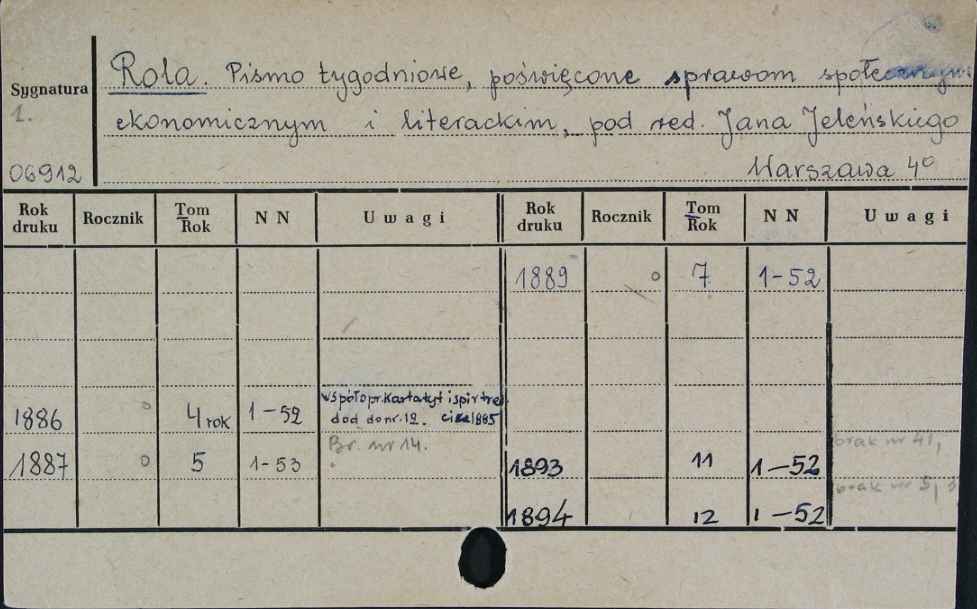 Rola. Pismo tygodniowe, poświęcone sprawom
Sygnatura
1.
ekonomicznym i literackim, pod red. Jana Jeleńskiego
06912
Warszawa 4º
Rok druku Rocznik Tom Rok NN Uwagi Rok druku Rocznik Tom Rok NN Uwagi
1889 o 7 1-52
współopr. ispistreś
1886 o 4 rok 1-52 dod do nr. 12. 1885
Br. nr 14. brak nr 41,
1887 o 5 1-53 1893 11 1-52
brak nr 5,
1894 12 1-52